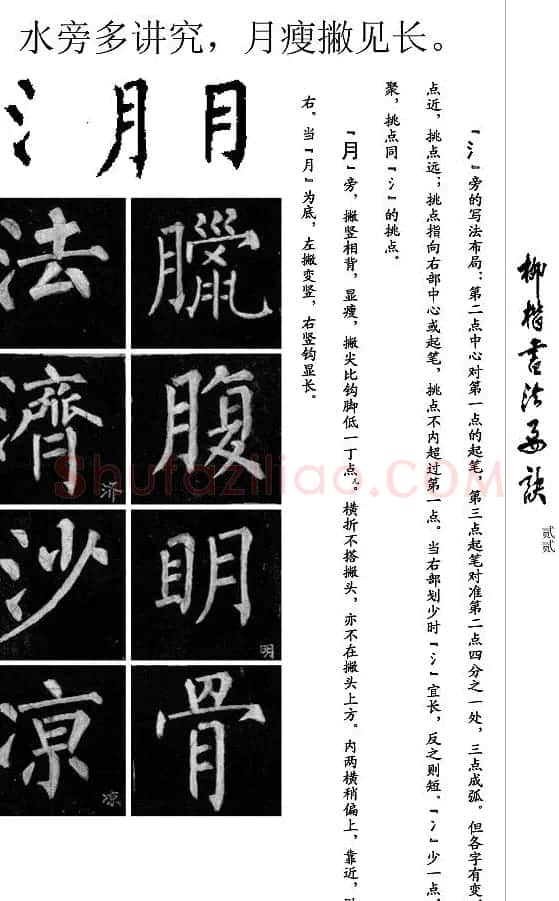 水旁多讲究，月瘦撇见长。
柳楷書法要訣
贰贰
『氵』旁的写法布局：第二点中心对第一点的起笔，第三点起笔对准第二点四分之一处，三点成弧。但各字有变
点近，挑点远；挑点指向右部中心或起笔，挑点不内超过第一点。当右部划少时『氵』宜长，反之则短。『冫』少一点，
聚，挑点同『氵』的挑点。
『月』旁，撇竖相背，显瘦，撇尖比钩脚低一丁点儿。横折不搭撇头，亦不在撇头上方。内两横稍偏上，靠近，
右。当『月』为底，左撇变竖，右竖钩显长。
氵月月
法臘
濟腹
济
沙眀
明
凉骨
凉
Shufaziliao.COM